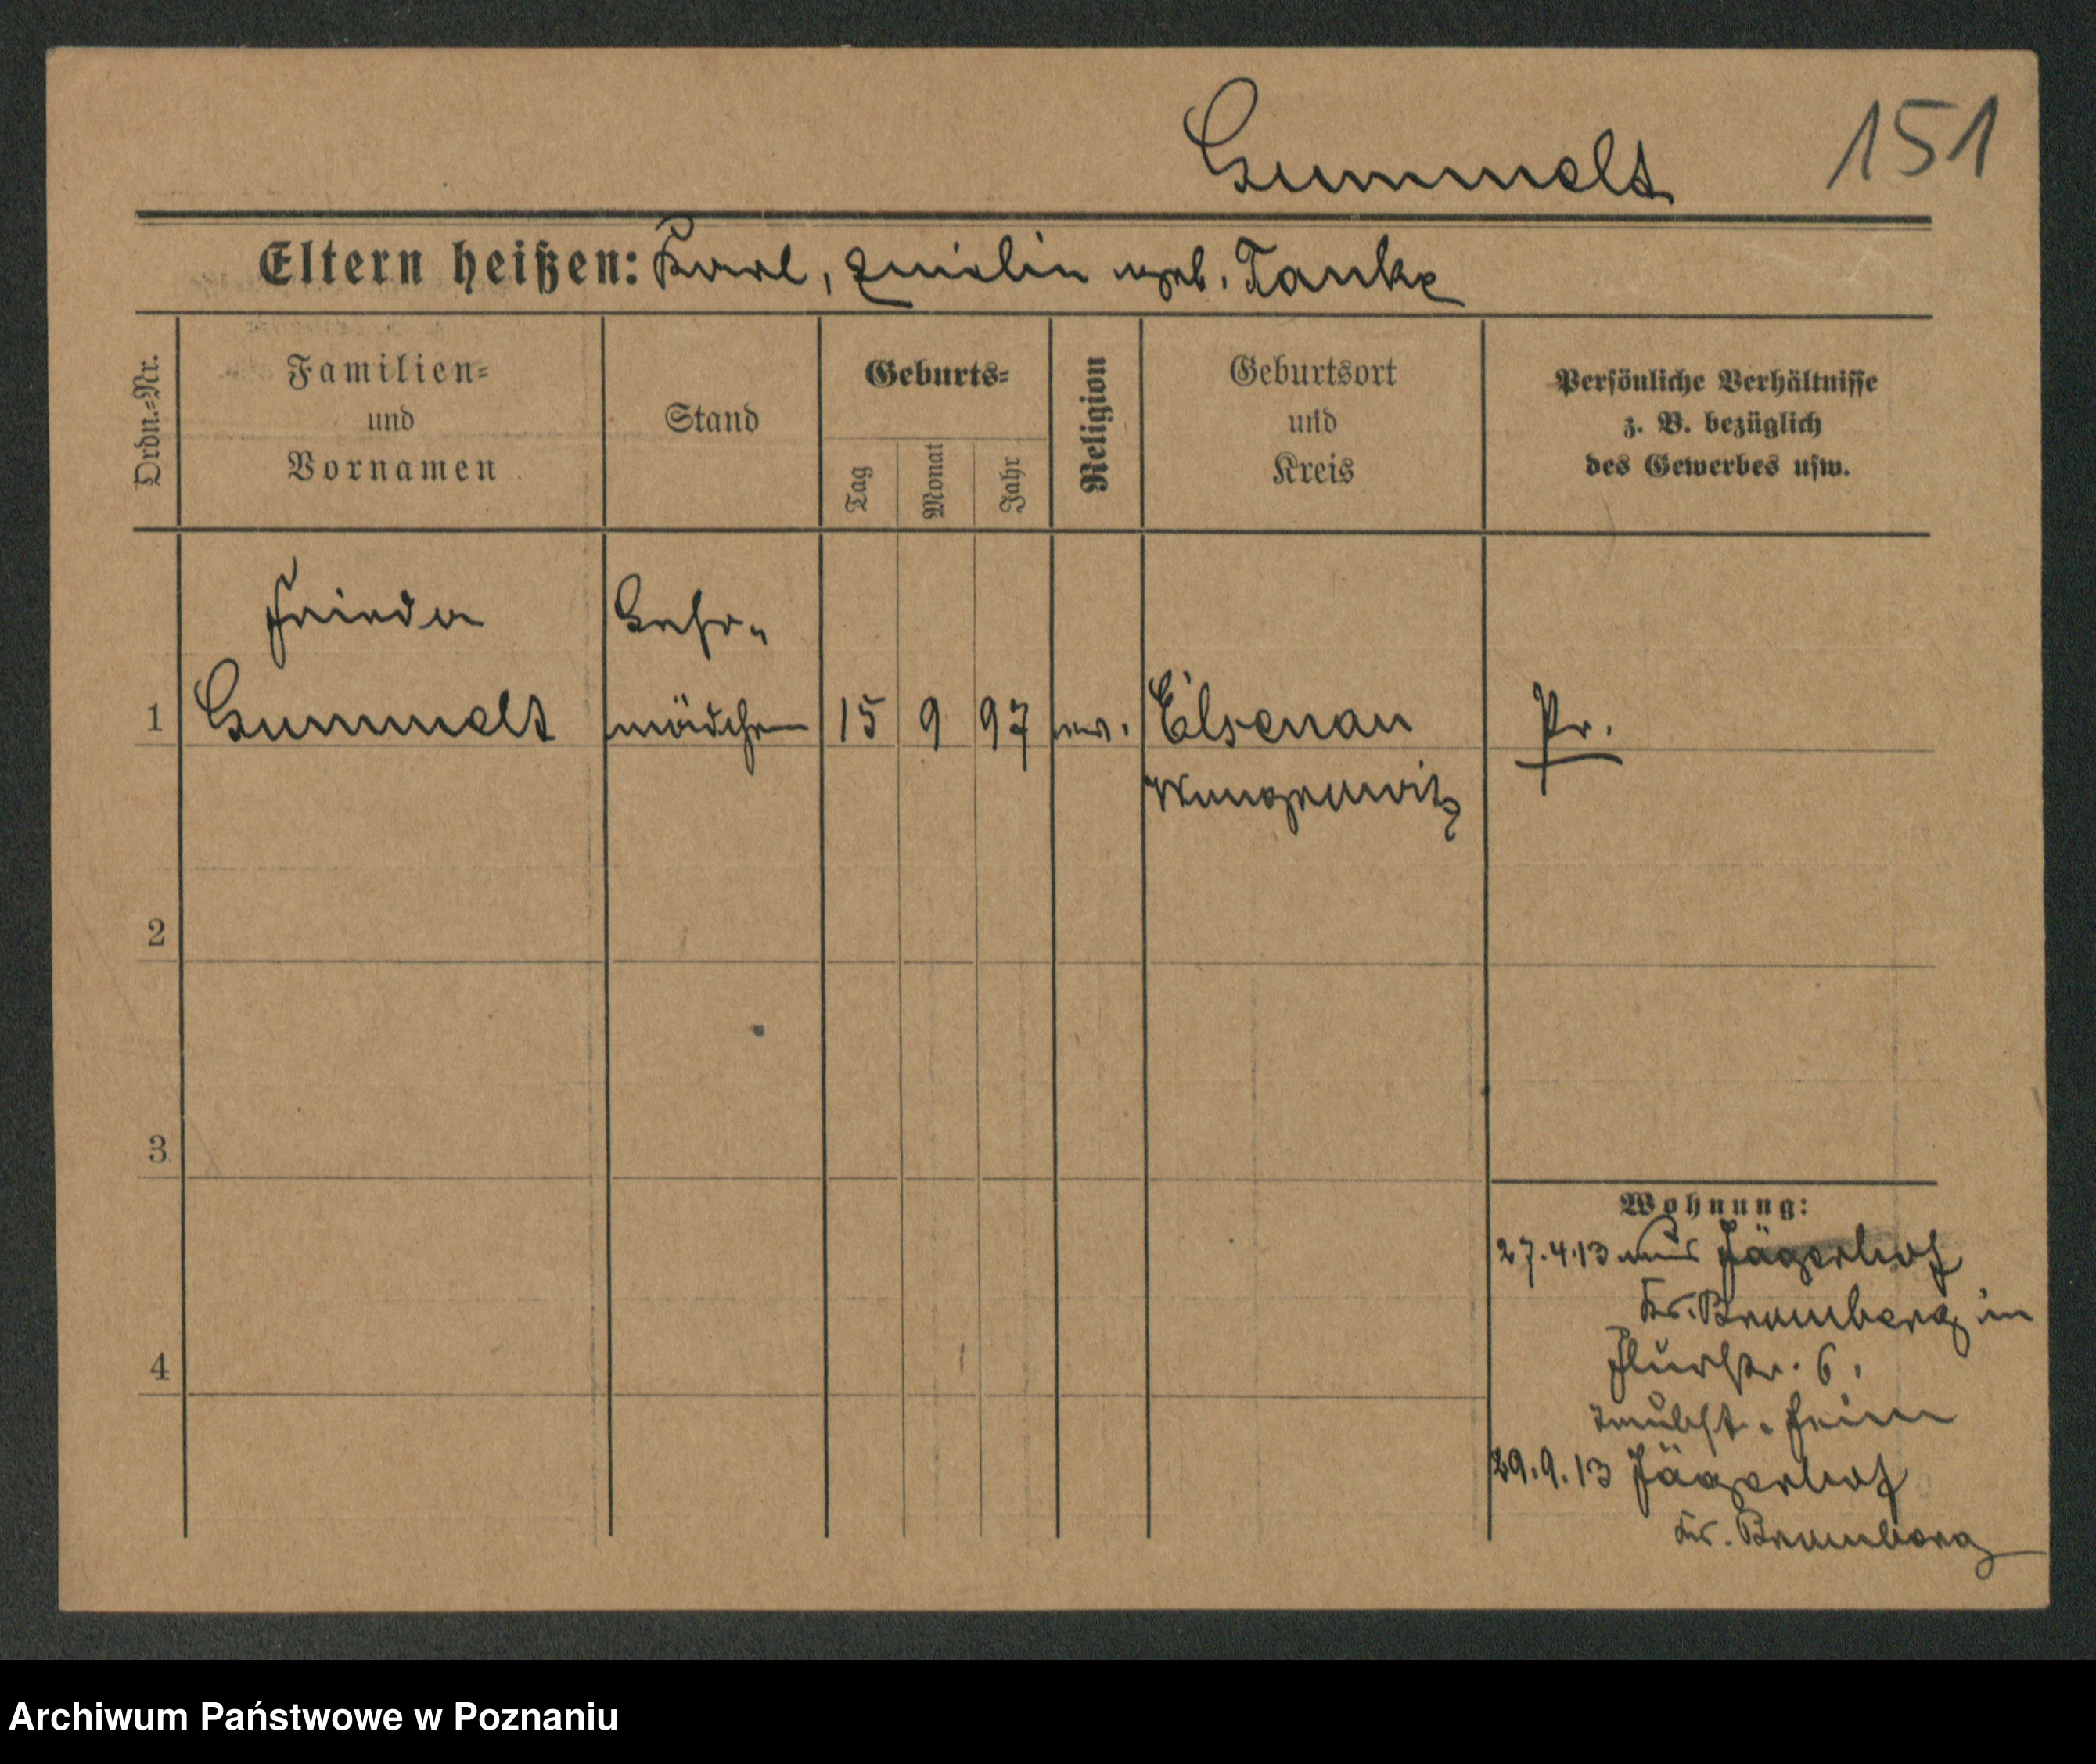 Gummelt 151
Eltern heißen: Karl, Emilie geb. Tanke
Ordn.-Nr.
Familien-
und
Vornamen
Stand
Geburts-
Tag
Monat
Jahr
Religion
Geburtsort
und
Kreis
Persönliche Verhältnisse
z. B. bezüglich
des Gewerbes usw.
Frieda
1 Gummelt
mädchen 15 9 97 ev. Elsenau
Wongrowitz
Pr.
2
3
4
Wohnung:
27.4.13 aus Jägerhof
Kr. Bromberg in
6.
29.9.13 Jägerhof
Kr. Bromberg
Archiwum Państwowe w Poznaniu